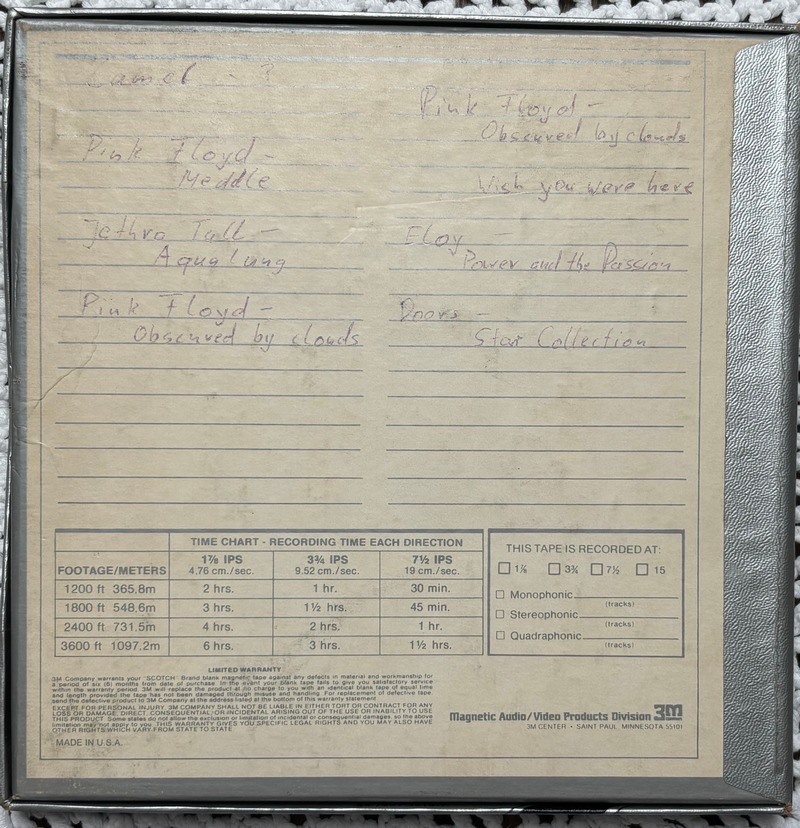 Camel - ?
Pink Floyd -
Meddle
Jethro Tull -
Aqualung
Pink Floyd -
Obscured by clouds
Pink Floyd -
Obscured by clouds
Wish you were here
Eloy -
Power and the Passion
Doors -
Star Collection
TIME CHART - RECORDING TIME EACH DIRECTION
FOOTAGE/METERS 1⅞ IPS 4.76 cm./sec. 3¾ IPS 9.52 cm./sec. 7½ IPS 19 cm./sec.
1200 ft 365,8m 2 hrs. 1 hr. 30 min.
1800 ft 548,6m 3 hrs. 1½ hrs. 45 min.
2400 ft 731.5m 4 hrs. 2 hrs. 1 hr.
3600 ft 1097.2m 6 hrs. 3 hrs. 1½ hrs.
THIS TAPE IS RECORDED AT:
1⅞ 3¾ 7½ 15
Monophonic
(tracks)
Stereophonic
(tracks)
Quadraphonic
(tracks)
LIMITED WARRANTY
3M Company warrants your "SCOTCH" Brand blank magnetic tape against any defects in material and workmanship for
a period of six (6) months from date of purchase. In the event your blank tape fails to give you satisfactory service
within the warranty period, 3M will replace the product at no charge to you with an identical blank tape of equal time
and length provided the tape has not been damaged through misuse and handling. For replacement of defective tape
send the defective product to 3M Company at the address listed at the bottom of this warranty statement.
EXCEPT FOR PERSONAL INJURY, 3M COMPANY SHALL NOT BE LIABLE IN EITHER TORT OR CONTRACT FOR ANY
LOSS OR DAMAGE, DIRECT, CONSEQUENTIAL, OR INCIDENTAL ARISING OUT OF THE USE OR INABILITY TO USE
THIS PRODUCT. Some states do not allow the exclusion or limitation of incidental or consequential damages, so the above
limitation may not apply to you. THIS WARRANTY GIVES YOU SPECIFIC LEGAL RIGHTS AND YOU MAY ALSO HAVE
OTHER RIGHTS WHICH VARY FROM STATE TO STATE
MADE IN U.S.A.
Magnetic Audio/Video Products Division 3M
3M CENTER • SAINT PAUL, MINNESOTA 55101